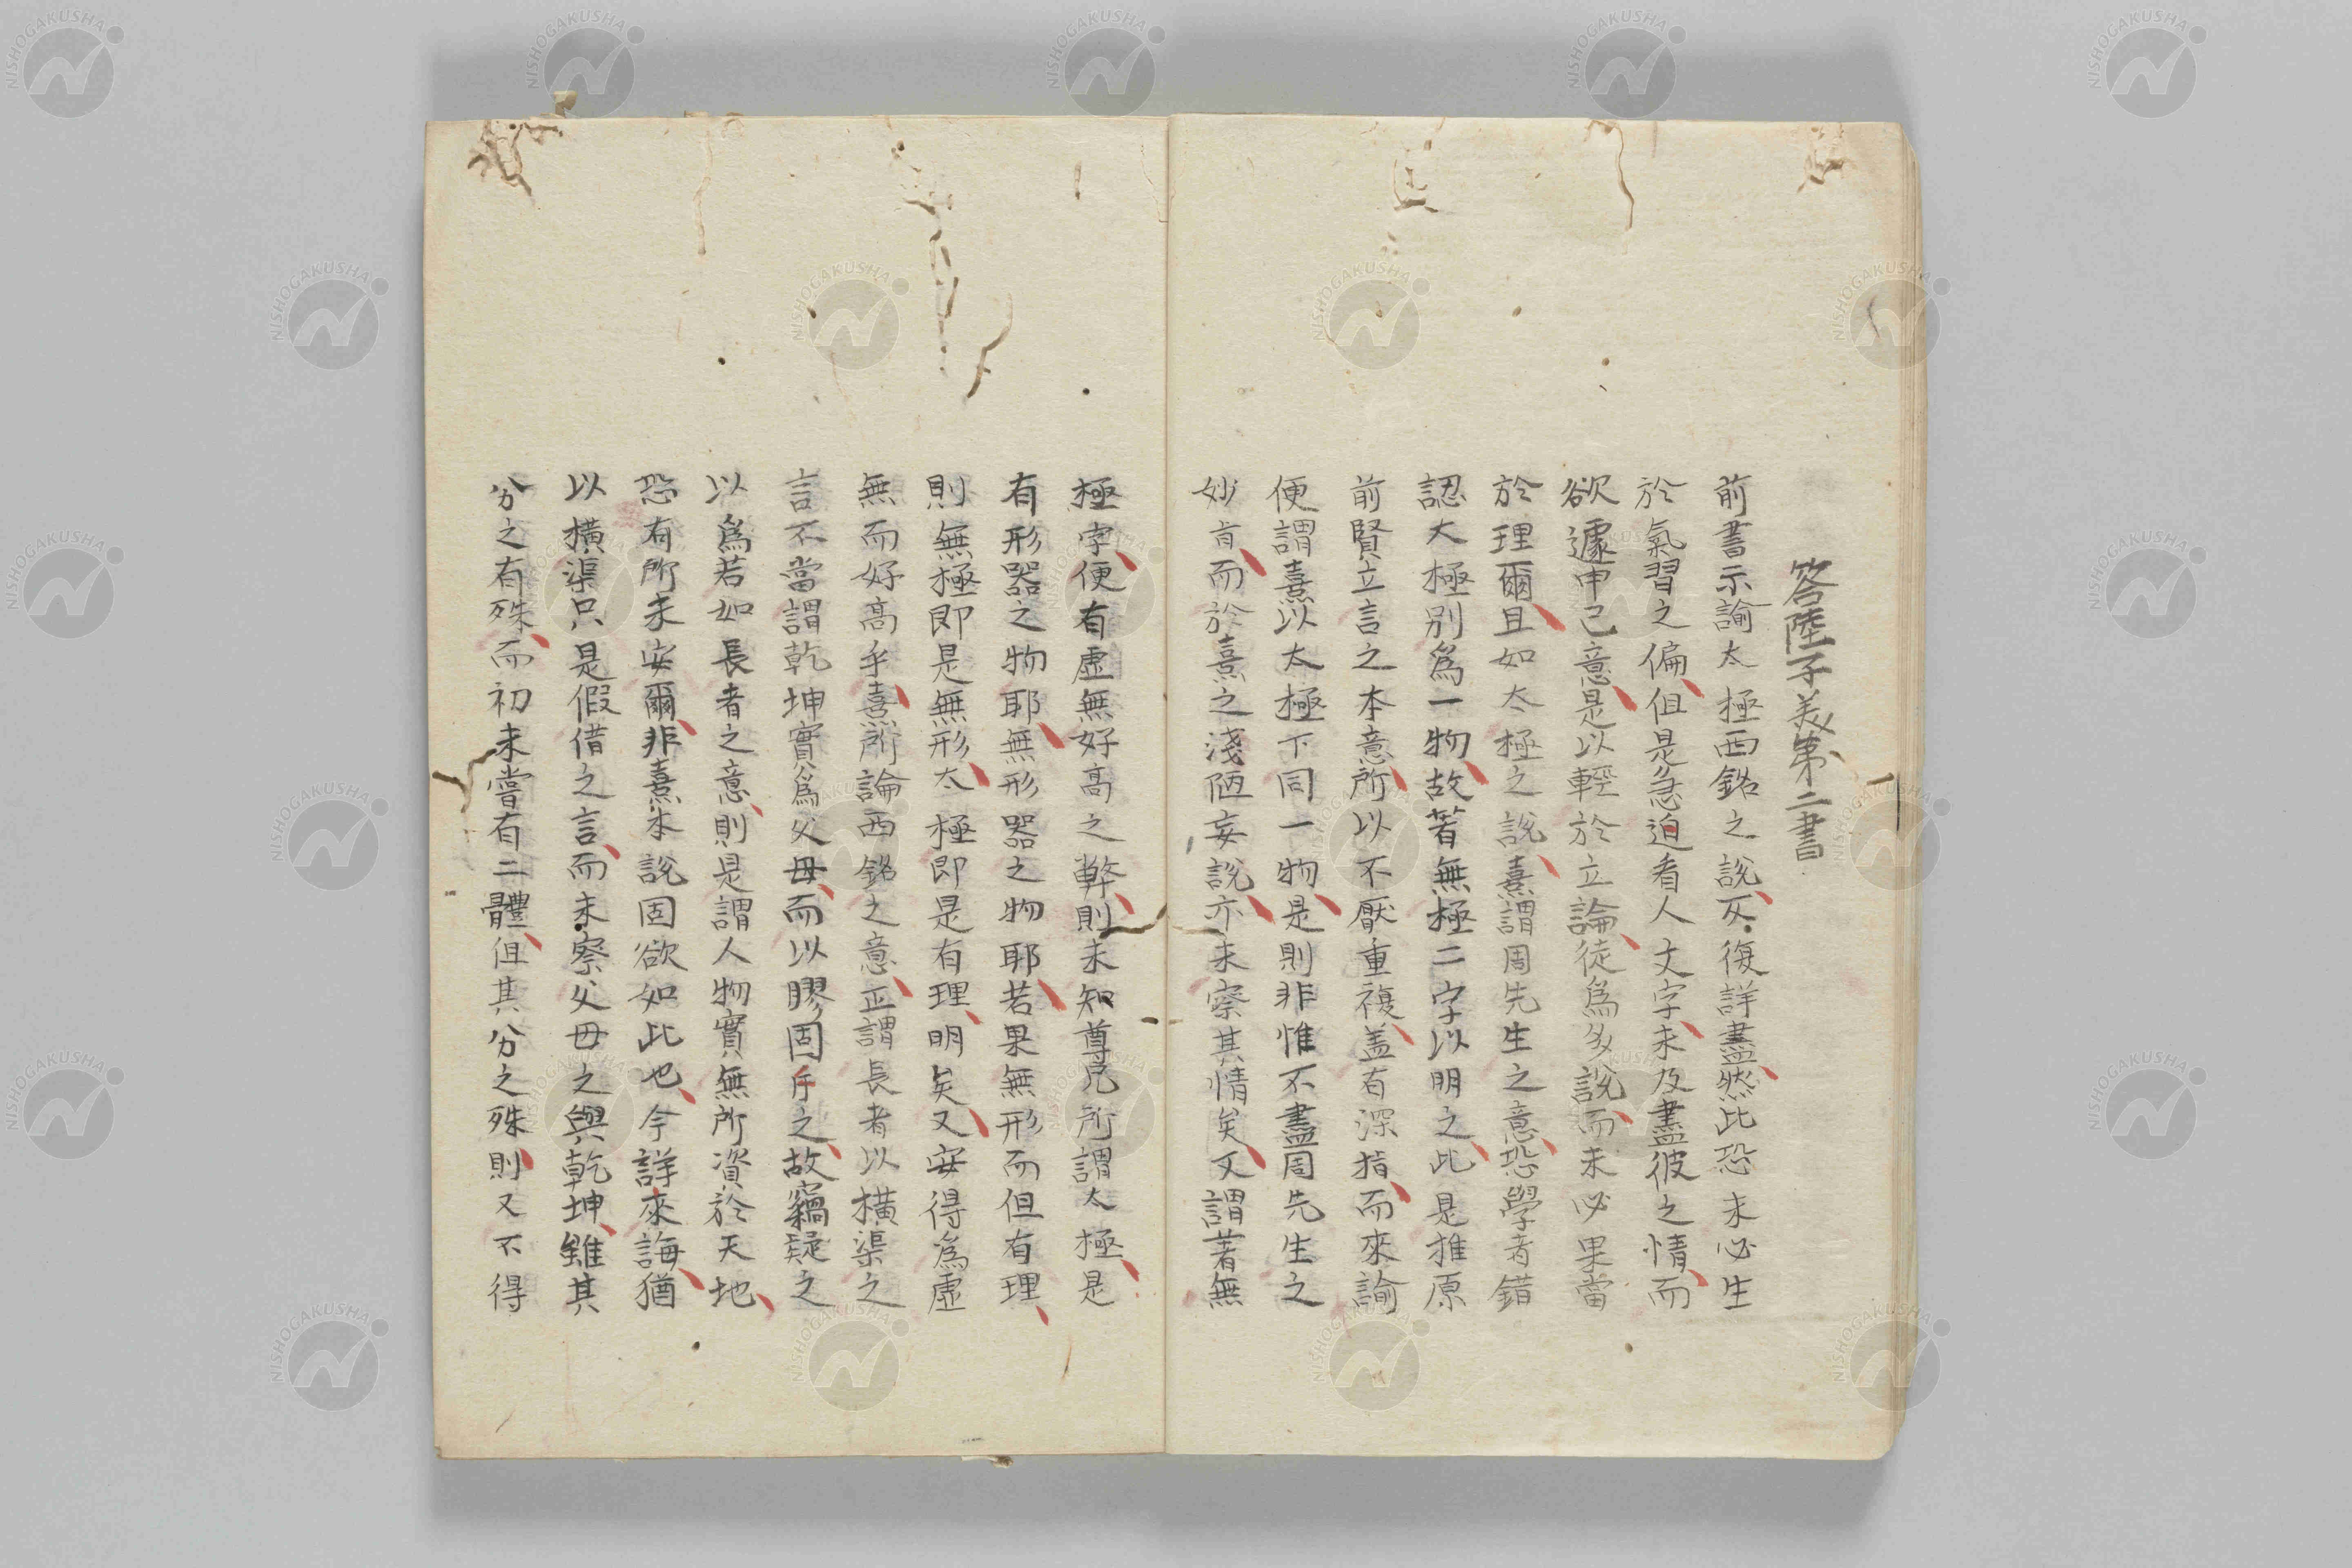 答陸子美第二書
前書示諭太極西銘之說反復詳盡然此恐未必生
於氣習之偏但是急迫看人文字未及盡彼之情而
欲遽申己意是以輕於立論徒爲多說而未必果當
於理爾且如太極之說熹謂周先生之意恐學者錯
認太極別爲一物故著無極二字以明之此是推原
前賢立言之本意所以不厭重複盖有深指而來諭
便謂熹以太極下同一物是則非惟不盡周先生之
妙旨而於熹之淺陋妄說亦未察其情矣又謂著無
極字便有虛無好高之弊則未知尊兄所謂太極是
有形器之物耶無形器之物耶若果無形而但有理
則無極即是無形太極即是有理明矣又安得爲虛
無而好高乎熹所論西銘之意正謂長者以橫渠之
言不當謂乾坤實爲父母而以膠固斥之故竊疑之
以爲若如長者之意則是謂人物實無所資於天地
恐有所未安爾非熹本說固欲如此也今詳來誨猶
以橫渠只是假借之言而未察父母之與乾坤雖其
分之有殊而初未嘗有二體但其分之殊則又不得
NISHOGAKUSHA